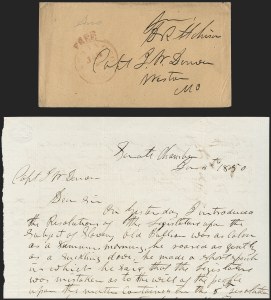 FREE
D R Atchison
Capt J. W. Denver
Weston
Mo
Senate Chamber
1850
Capt J W Denver
Dear Sir
On yesterday I introduced
the Resolutions of the Legislature upon the
Subject of Slavery, Old was as calm
as a summer morning, he roared as gently
as a suckling dove, he made a short speech
in which he said that the Legislature
was mistaken as to the will of the people
upon the matter contained in the Resolution